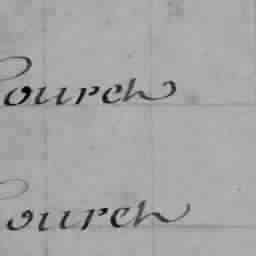 Pourch
Pourch